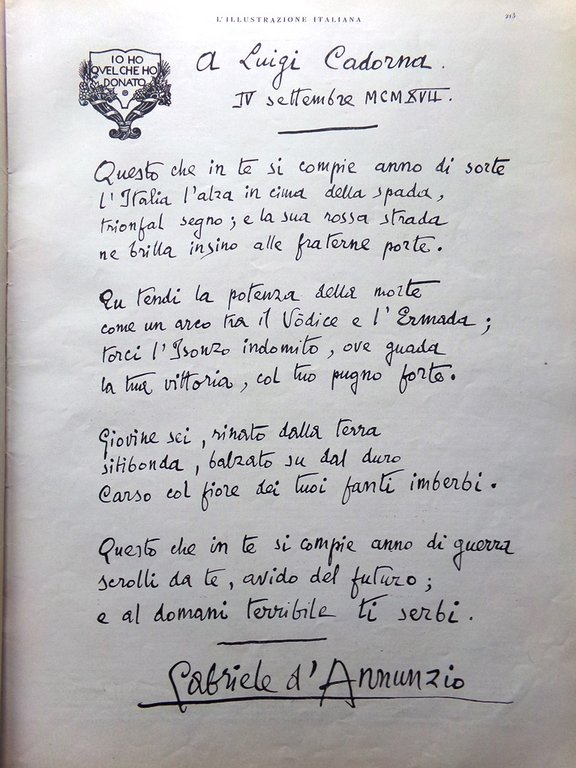 L'ILLUSTRAZIONE ITALIANA
213
IO HO
QVEL CHE HO
DONATO
A Luigi Cadorna.
IV settembre MCMXVII.
Questo che in te si compie anno di sorte
l'Italia l'alza in cima della spada,
trionfal segno; e la sua rossa strada
ne brilla insino alle fraterne porte.
Tu tendi la potenza della morte
come un arco tra il Vòdice e l'Ermada;
torci l'Isonzo indomito, ove guada
la tua vittoria, col tuo pugno forte.
Giovine sei, rinato dalla terra
sitibonda, balzato su dal duro
Carso col fiore dei tuoi fanti imberbi.
Questo che in te si compie anno di guerra
scrolli da te, avido del futuro;
e al domani terribile ti serbi.
Gabriele d'Annunzio